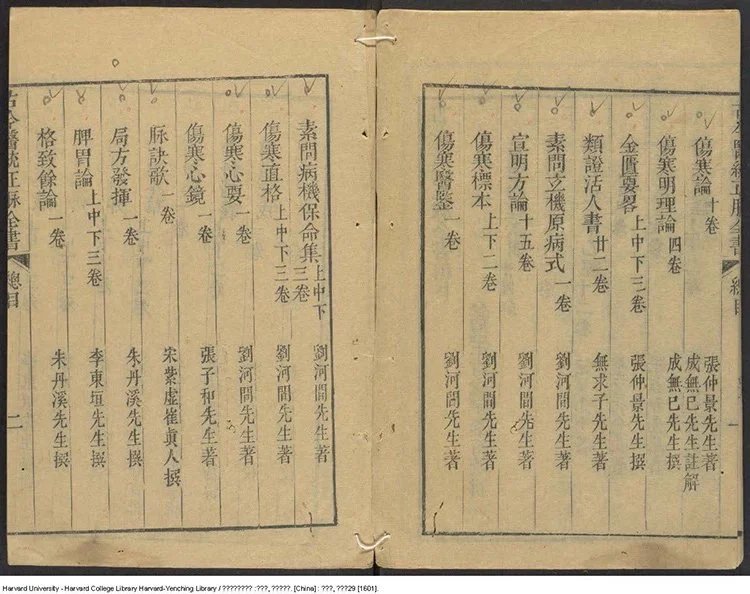 傷寒論 十卷 張仲景先生著 成無已先生註解
傷寒明理論 四卷 成無已先生撰
金匱要畧 上中下三卷 張仲景先生撰
類證活人書 廿二卷 無求子先生著
素問玄機原病式 一卷 劉河間先生著
宣明方論 十五卷 劉河間先生著
傷寒標本 上下二卷 劉河間先生著
傷寒醫鑒 一卷 劉河間先生著
素問病機保命集 上中下三卷 劉河間先生著
傷寒直格 上中下三卷 劉河間先生著
傷寒心要 一卷 劉河間先生著
傷寒心鏡 一卷 張子和先生著
脉訣歌 一卷 宋紫虛崔眞人撰
局方發揮 一卷 朱丹溪先生撰
脾胃論 上中下三卷 李東垣先生撰
格致餘論 一卷 朱丹溪先生撰
總目 二
Harvard University - Harvard College Library Harvard-Yenching Library / ???????? :???, ?????. [China] : ???, ???29 [1601].